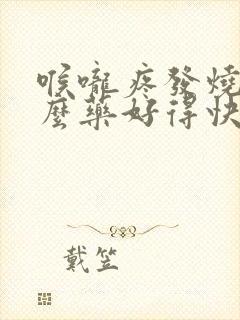 喉嚨疼發燒
麼藥好得快
戴笠